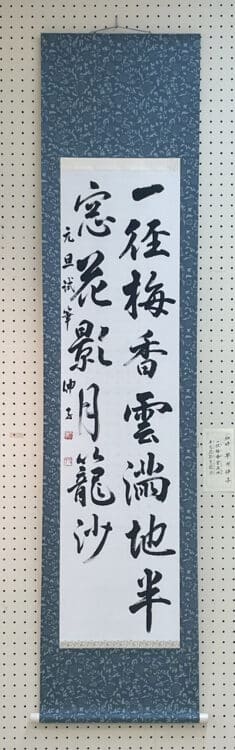 一径梅香雲満地半
窓花影月籠沙
元旦試筆